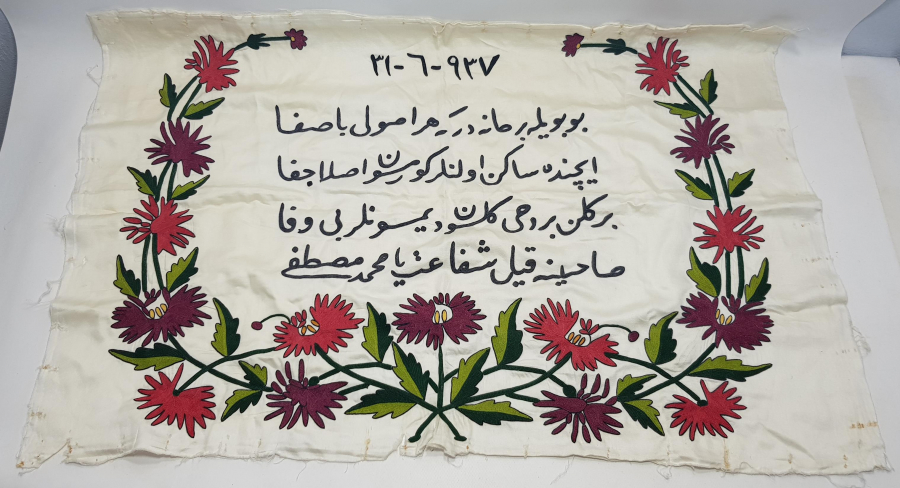 ٣١-٦-٩٣٧
بو بويله بر خانه در كه هر اصولى با صفا
ايچنده ساكن اولنلر كورمسون اصلا جفا
بر كلن بر دخى كلسون ديمسونلر بى وفا
صاحبينه قيل شفاعت يا محمد مصطفى